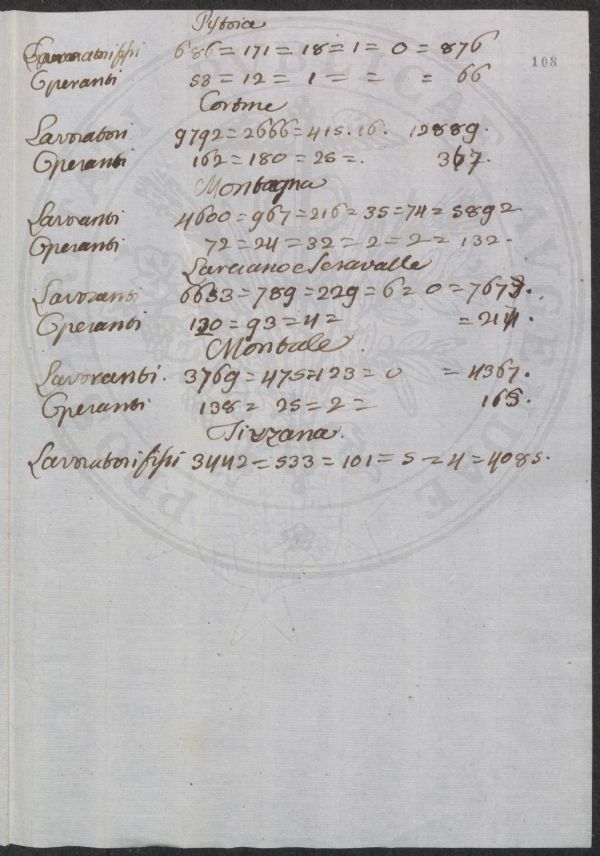 Pystoia
Lavoratori fissi 686 = 171 = 18 = 1 = 0 = 876
108
Operanti 53 = 12 = 1 = = = 66
Cortine
Lavoratori 9792 = 2666 = 415. 16. 12889.
Operanti 162 = 180 = 25 =. 367.
Montagna
Lavoranti 4600 = 967 = 216 = 35 = 74 = 5892
Operanti 72 = 24 = 32 = 2 = 2 = 132.
Larciano e Seravalle
Lavoranti 6653 = 789 = 229 = 6 = 0 = 7677.
Operanti 120 = 93 = 4 = = 217.
Montale
Lavoranti. 3769 = 475 = 123 = 0 = 4367.
Operanti 138 = 25 = 2 = 165.
Tizzana.
Lavoratori fissi 3442 = 533 = 101 = 5 = 4 = 4085.